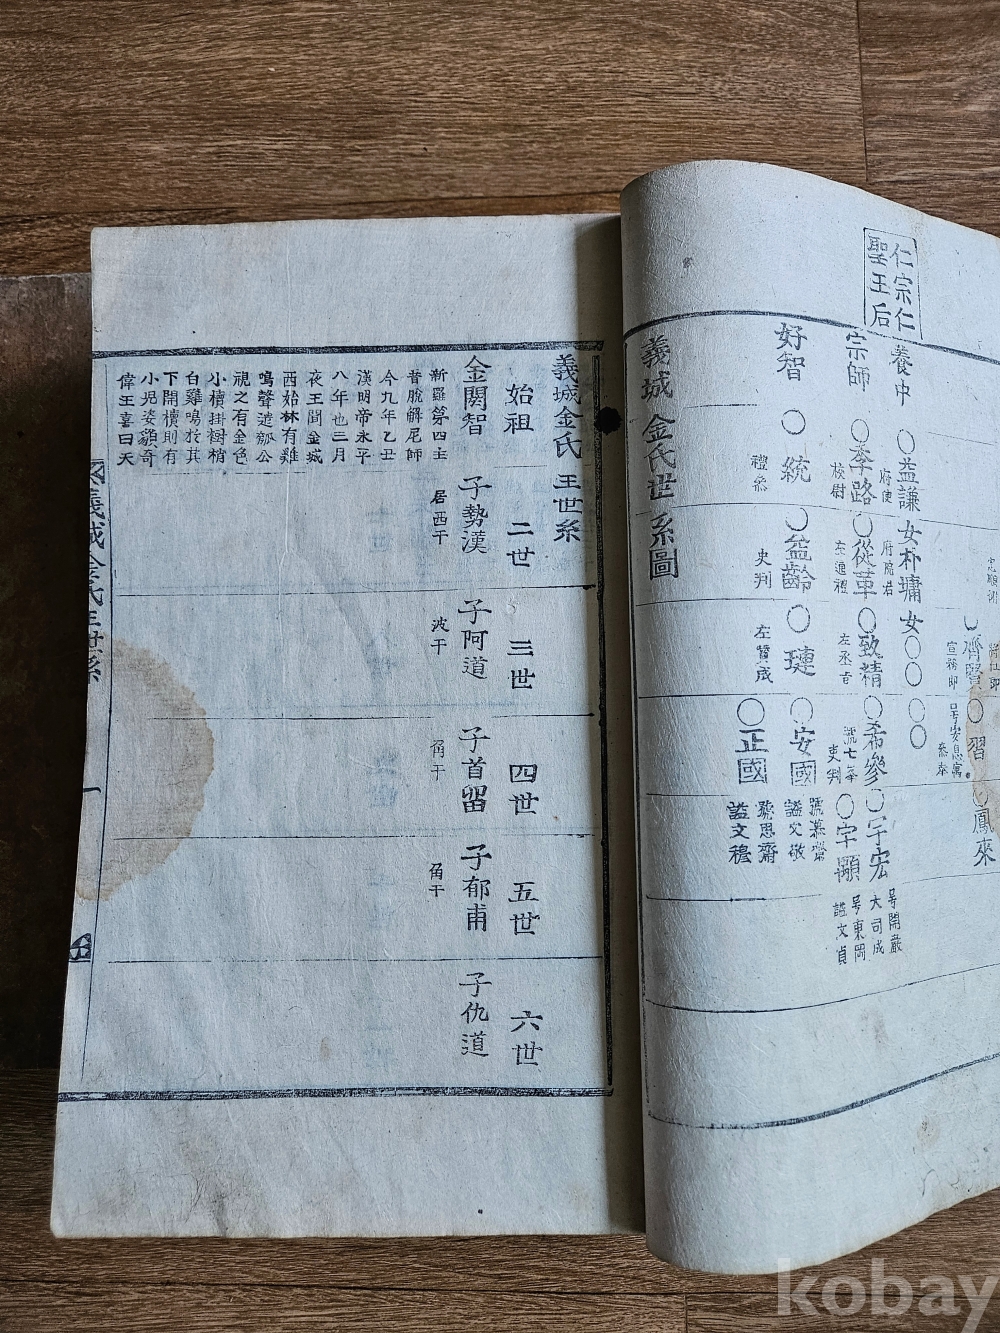 仁宗仁
聖王后
養中
○益謙
府使
女朴墉
府院君
女○○
○○
宗師
○季路
校尉
○從革
左通禮
○致精
左丞旨
○希參
號七峯
吏判
○宇宏
号開巖
大司成
○宇顒
号東岡
謚文貞
好智
○統
禮參
○益齡
吏判
○璉
左贊成
○安國
號慕齋
謚文敬
○正國
號思齋
謚文穆
宣務郎
○習
号安息窩
參奉
○鳳來
義城金氏世系圖
義城金氏王世系
始祖
二世
三世
四世
五世
六世
金閼智
新羅第四主
昔脫解尼師
今九年乙丑
漢明帝永平
八年也三月
夜王聞金城
西始林有雞
鳴聲遣瓠公
視之有金色
小櫝掛樹梢
白雞鳴於其
下開櫝則有
小兒姿額奇
偉王喜曰天
子勢漢
居西干
子阿道
波干
子首留
角干
子郁甫
角干
子仇道
義城金氏王世系
一
kobay